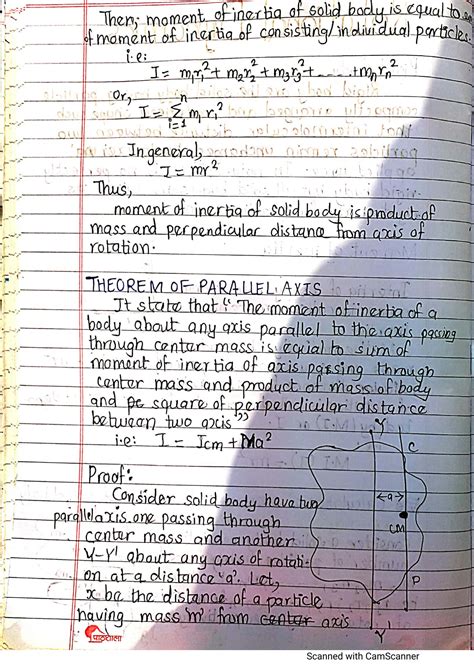 Then, moment of inertia of solid body is equal to
of moment of inertia of consisting/individual particles.
i.e:
I = m₁r₁² + m₂r₂² + m₃r₃² + ...... + mₙrₙ²
Or,
I = Σ mᵢ rᵢ²
n
i=1
In general,
I = mr²
Thus,
moment of inertia of solid body is product of
mass and perpendicular distance from axis of
rotation.
THEOREM OF PARALLEL AXIS
It state that "The moment of inertia of a
body about any axis parallel to the axis passing
through center mass is equal to sum of
moment of inertia of axis passing through
center mass and product of mass of body
and square of perpendicular distance
between two axis"
i.e: I = Icm + Ma²
Proof:
Consider solid body have two
parallel axis. one passing through
center mass and another
Y-Y' about any axis of rotati-
on at a distance 'a'. Let,
x be the distance of a particle
having mass 'm' from center axis
Y
C
a
CM
P
Y'
पाठशाला
Scanned with CamScanner